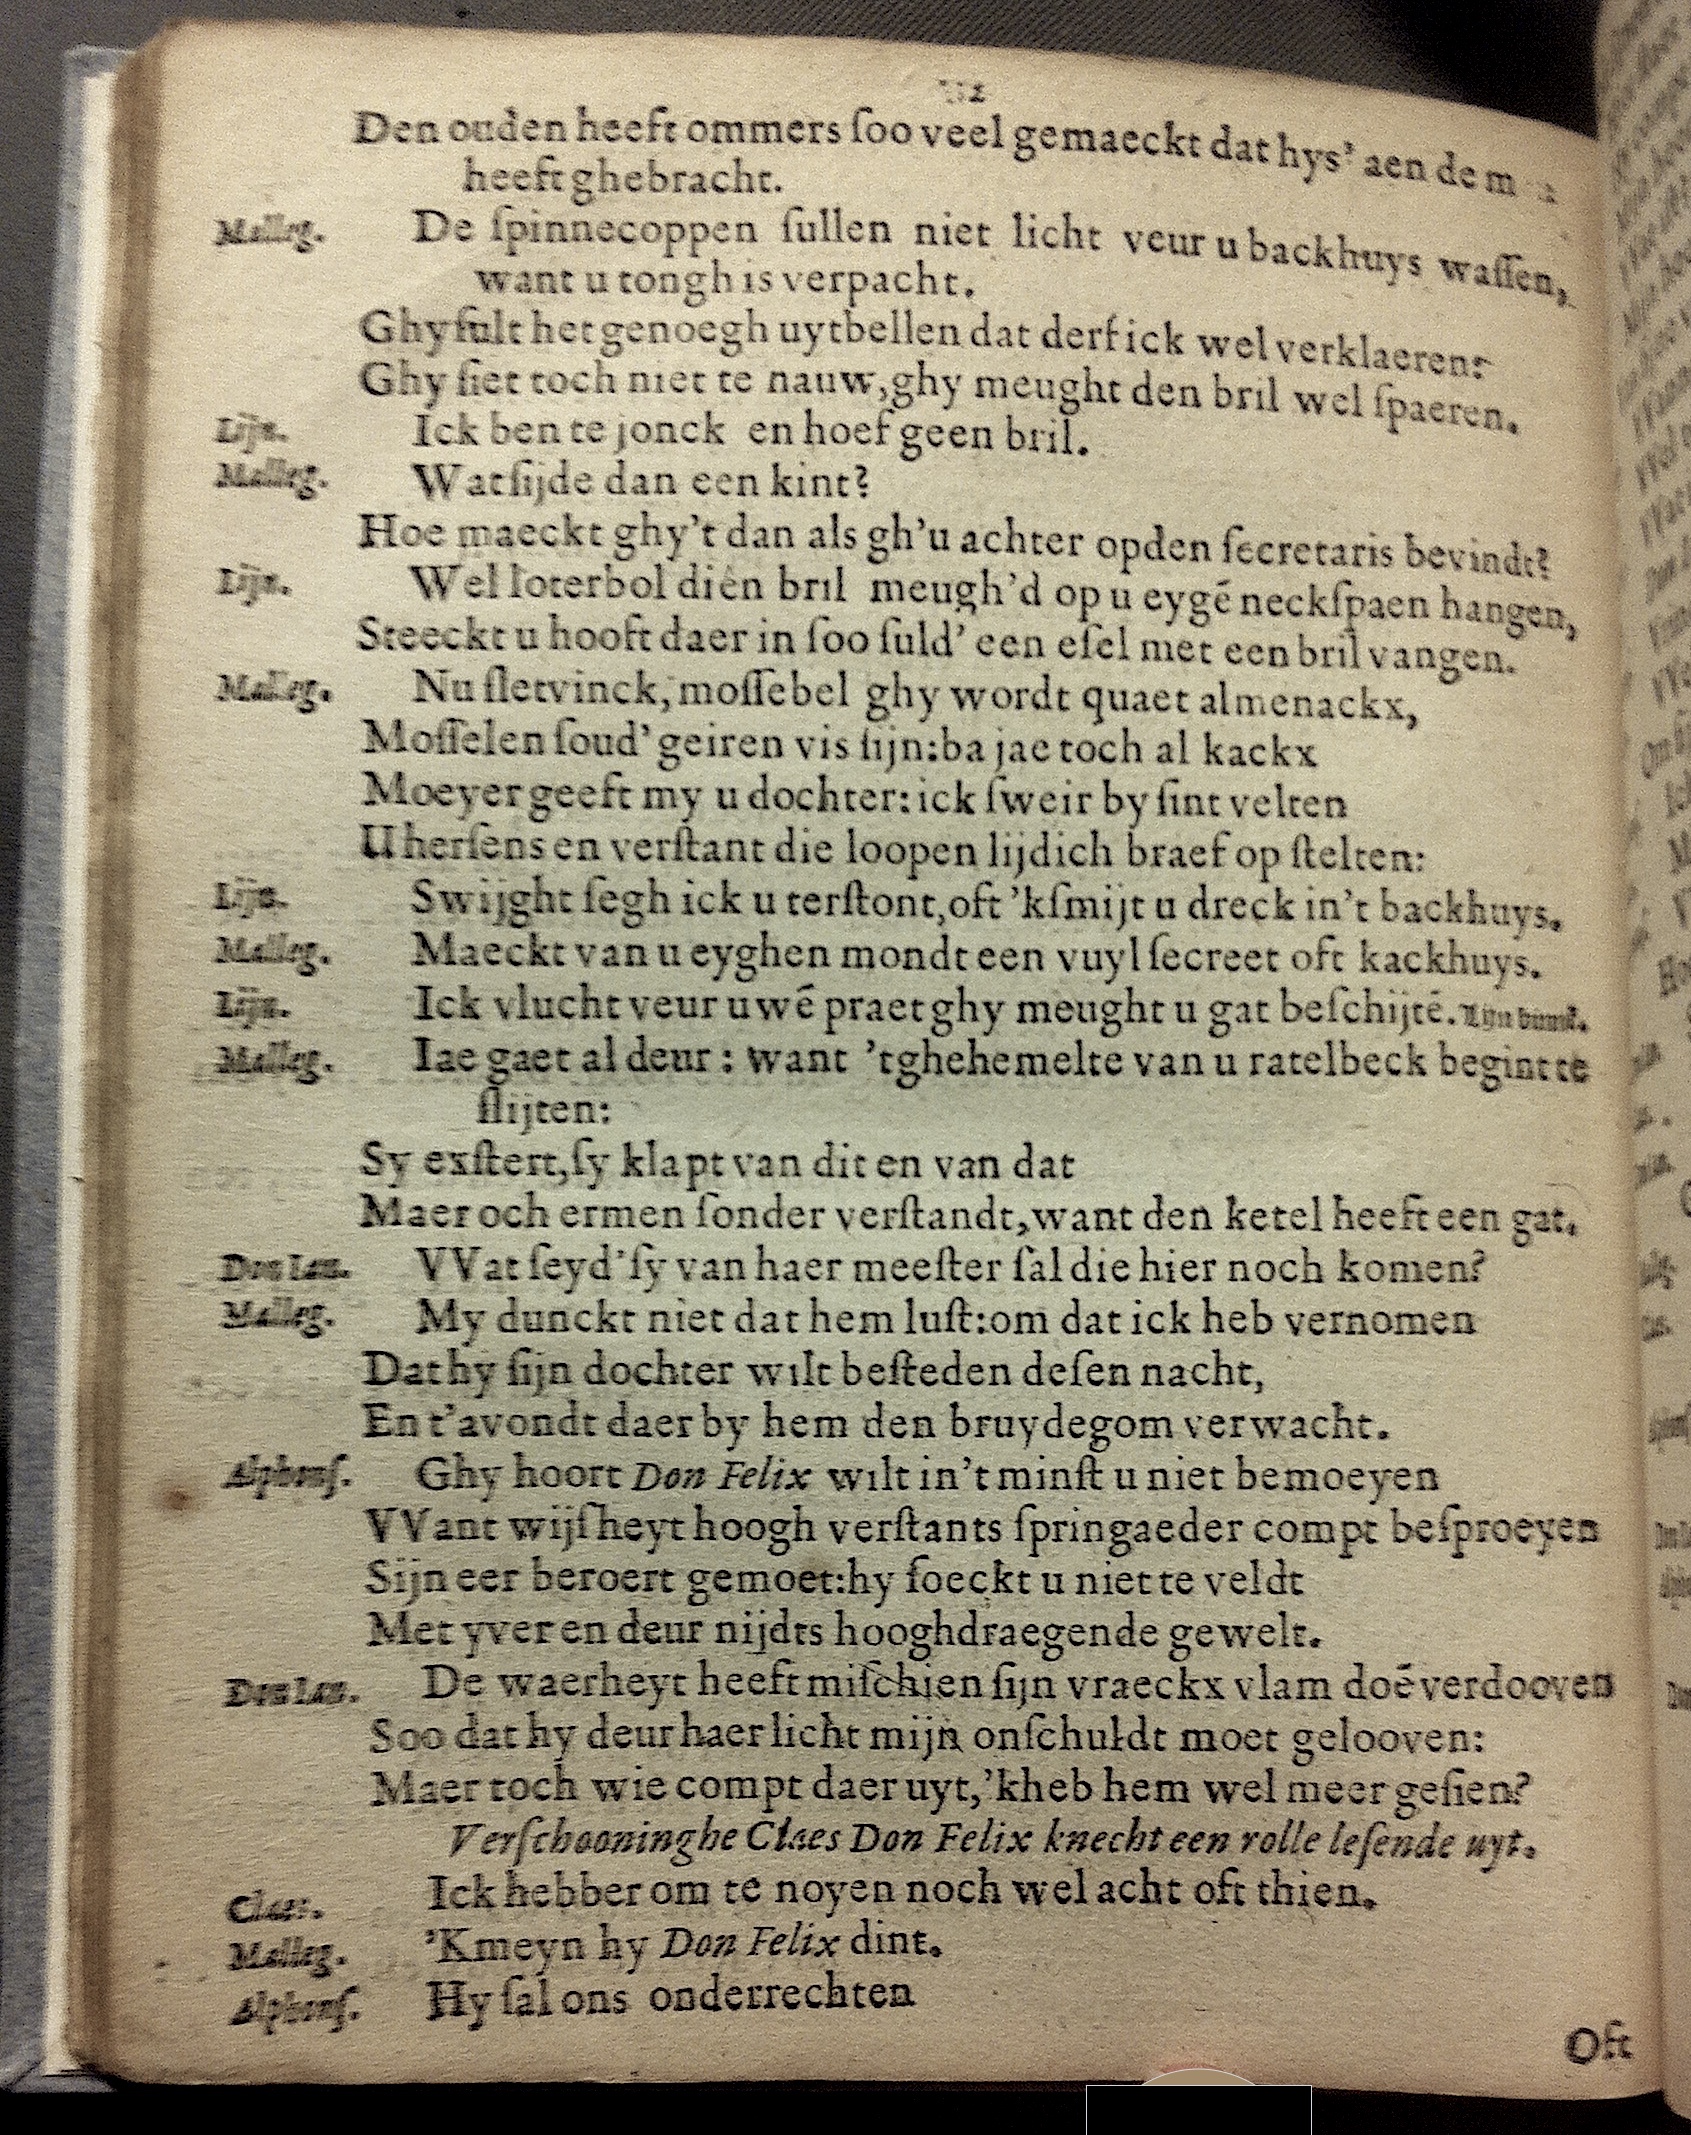 Den ouden heeft ommers ſoo veel gemaeckt dat hys' aen de m
heeft ghebracht.
Malleg. De ſpinnecoppen ſullen niet licht veur u backhuys waſſen,
want u tongh is verpacht.
Ghy ſult het genoegh uytbellen dat derf ick wel verklaeren:
Ghy ſiet toch niet te nauw, ghy meught den bril wel ſpaeren.
Lijn. Ick ben te jonck en hoef geen bril.
Malleg. Wat ſijde dan een kint?
Hoe maeckt ghy't dan als gh'u achter op den ſecretaris bevindt?
Lijn. Wel loterbol dien bril meugh'd op u eygē neckſpaen hangen,
Steeckt u hooft daer in ſoo ſuld' een eſel met een bril vangen.
Malleg. Nu ſletvinck, moſſebel ghy wordt quaet almenackx,
Moſſelen ſoud' geiren vis ſijn: ba jae toch al kackx
Moeyer geeft my u dochter: ick ſweir by ſint velten
U herſens en verſtant die loopen lijdich braef op ſtelten:
Lijn. Swijght ſegh ick u terſtont, oft 'kſmijt u dreck in't backhuys.
Malleg. Maeckt van u eyghen mondt een vuyl ſecreet oft kackhuys.
Lijn. Ick vlucht veur uwē praet ghy meught u gat beſchijtē. Lijn
Malleg. Iae gaet al deur: want 'tghehemelte van u ratelbeck begint te
ſlijten:
Sy exſtert, ſy klapt van dit en van dat
Maer och ermen ſonder verſtandt, want den ketel heeft een gat.
Don Lau. VVat ſeyd' ſy van haer meeſter ſal die hier noch komen?
Malleg. My dunckt niet dat hem luſt: om dat ick heb vernomen
Dat hy ſijn dochter wilt beſteden deſen nacht,
En t'avondt daer by hem den bruydegom verwacht.
Alphonſ. Ghy hoort Don Felix wilt in't minſt u niet bemoeyen
VVant wijſheyt hoogh verſtants ſpringaeder compt beſproeyen
Sijn eer beroert gemoet: hy ſoeckt u niet te veldt
Met yver en deur nijdts hooghdraegende gewelt.
Don Lau. De waerheyt heeft miſchien ſijn vraeckx vlam doē verdooven
Soo dat hy deur haer licht mijn onſchuldt moet gelooven:
Maer toch wie compt daer uyt, 'kheb hem wel meer geſien?
Verſchooninghe Claes Don Felix knecht een rolle leſende uyt.
Claes. Ick hebber om te noyen noch wel acht oft thien.
Malleg. 'Kmeyn hy Don Felix dint.
Alphonſ. Hy ſal ons onderrechten
Oft